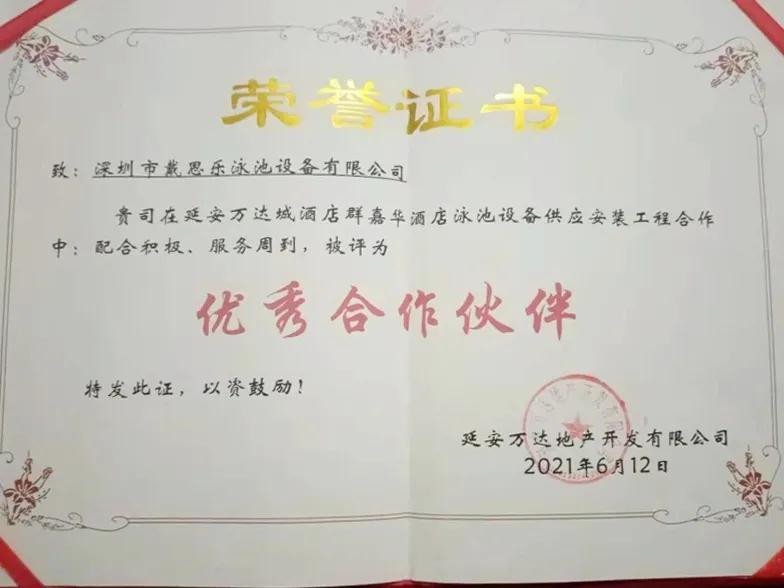 荣誉证书
致：深圳市戴思乐泳池设备有限公司
贵司在延安万达城酒店群嘉华酒店泳池设备供应安装工程合作
中：配合积极、服务周到，被评为
优秀合作伙伴
特发此证，以资鼓励！
延安万达地产开发有限公司
2021年6月12日